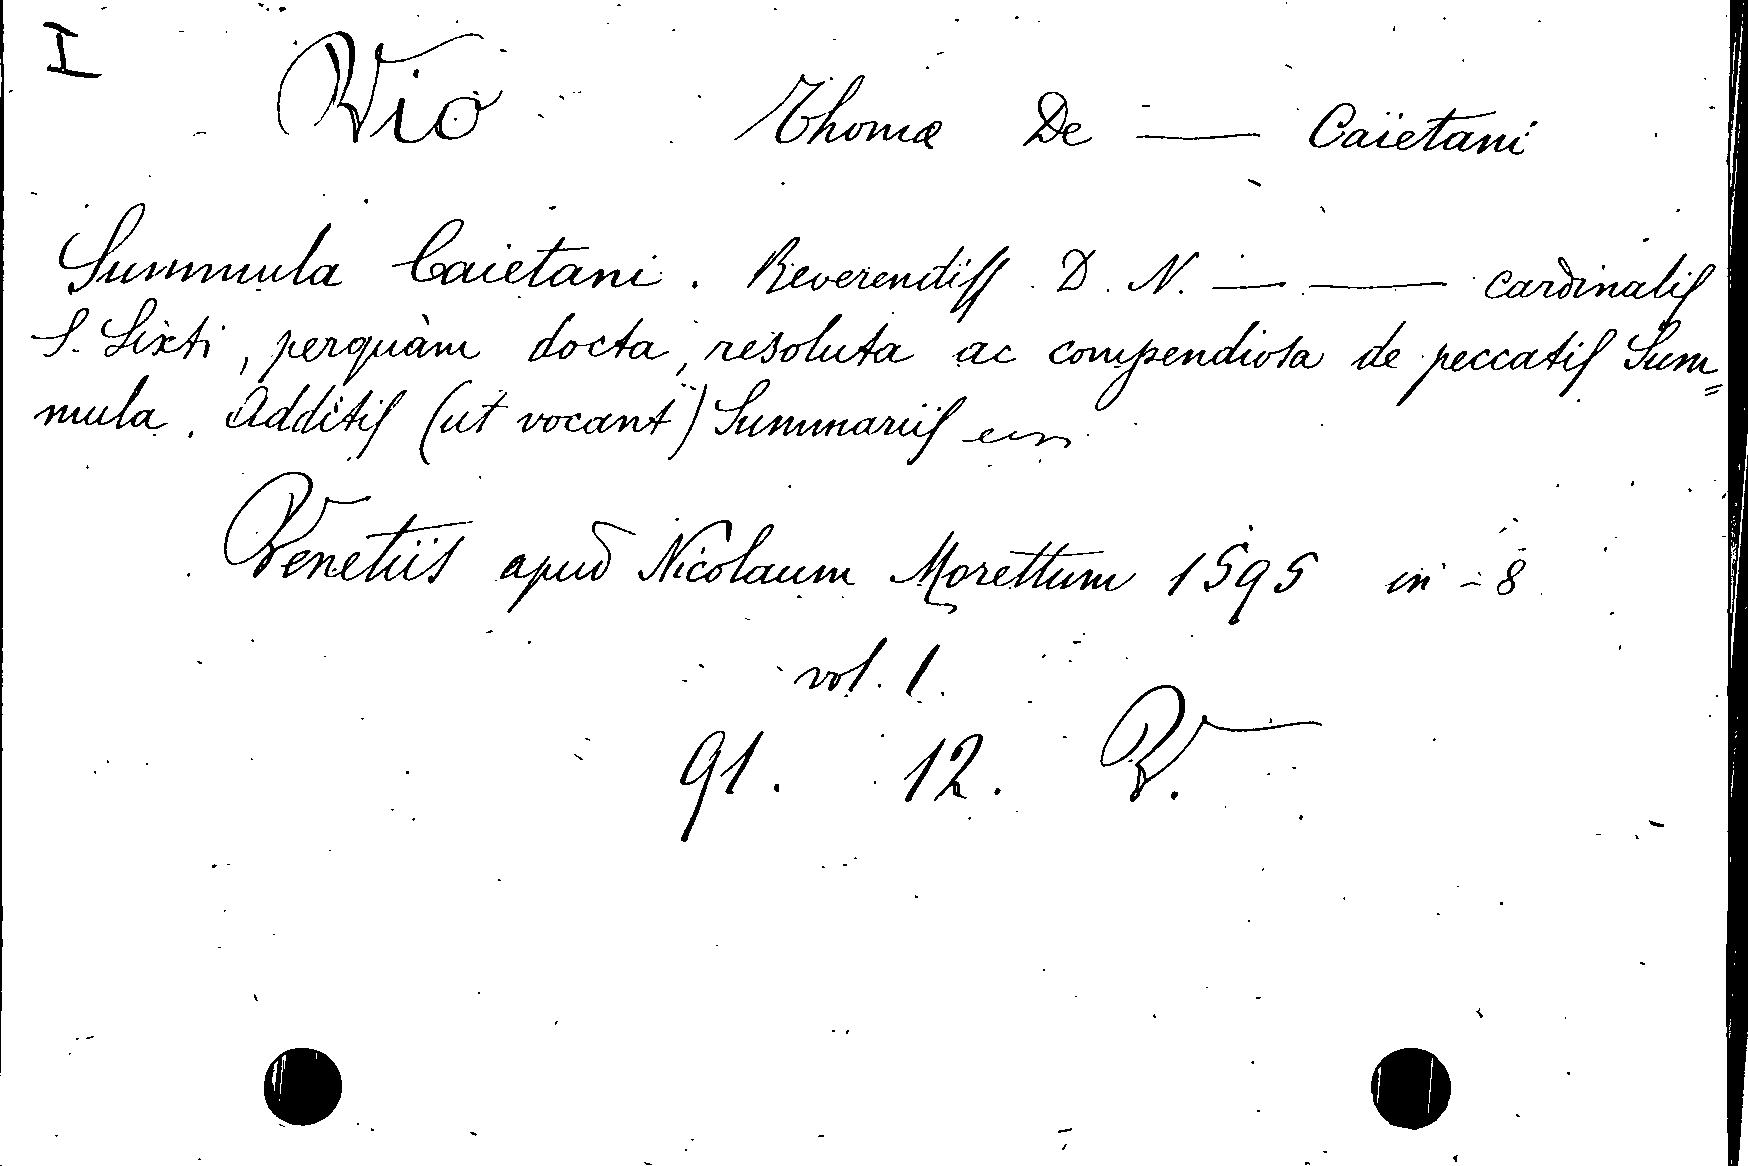 I
Vio Thomæ De — Caietani
Summula Caietani. Reverendiss D. N. — — cardinalis
S. Sixti, perquàm docta, resoluta ac compendiosa de peccatis Sum=
mula. Additis (ut vocant) Summariis
Venetiis apud Nicolaum Morettum 1595 in-8
vol. 1.
91. 12. V.